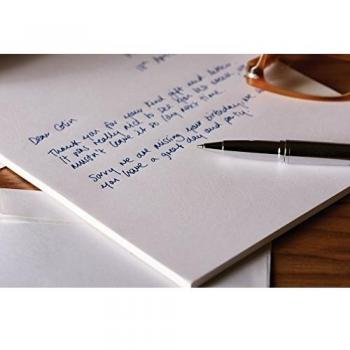 April
Dear Colin
Thank you for your kind gift and letter
It was really nice to see you last week,
mustn't leave it so long next time
Sorry we are missing your birthday
you have a great day and party!